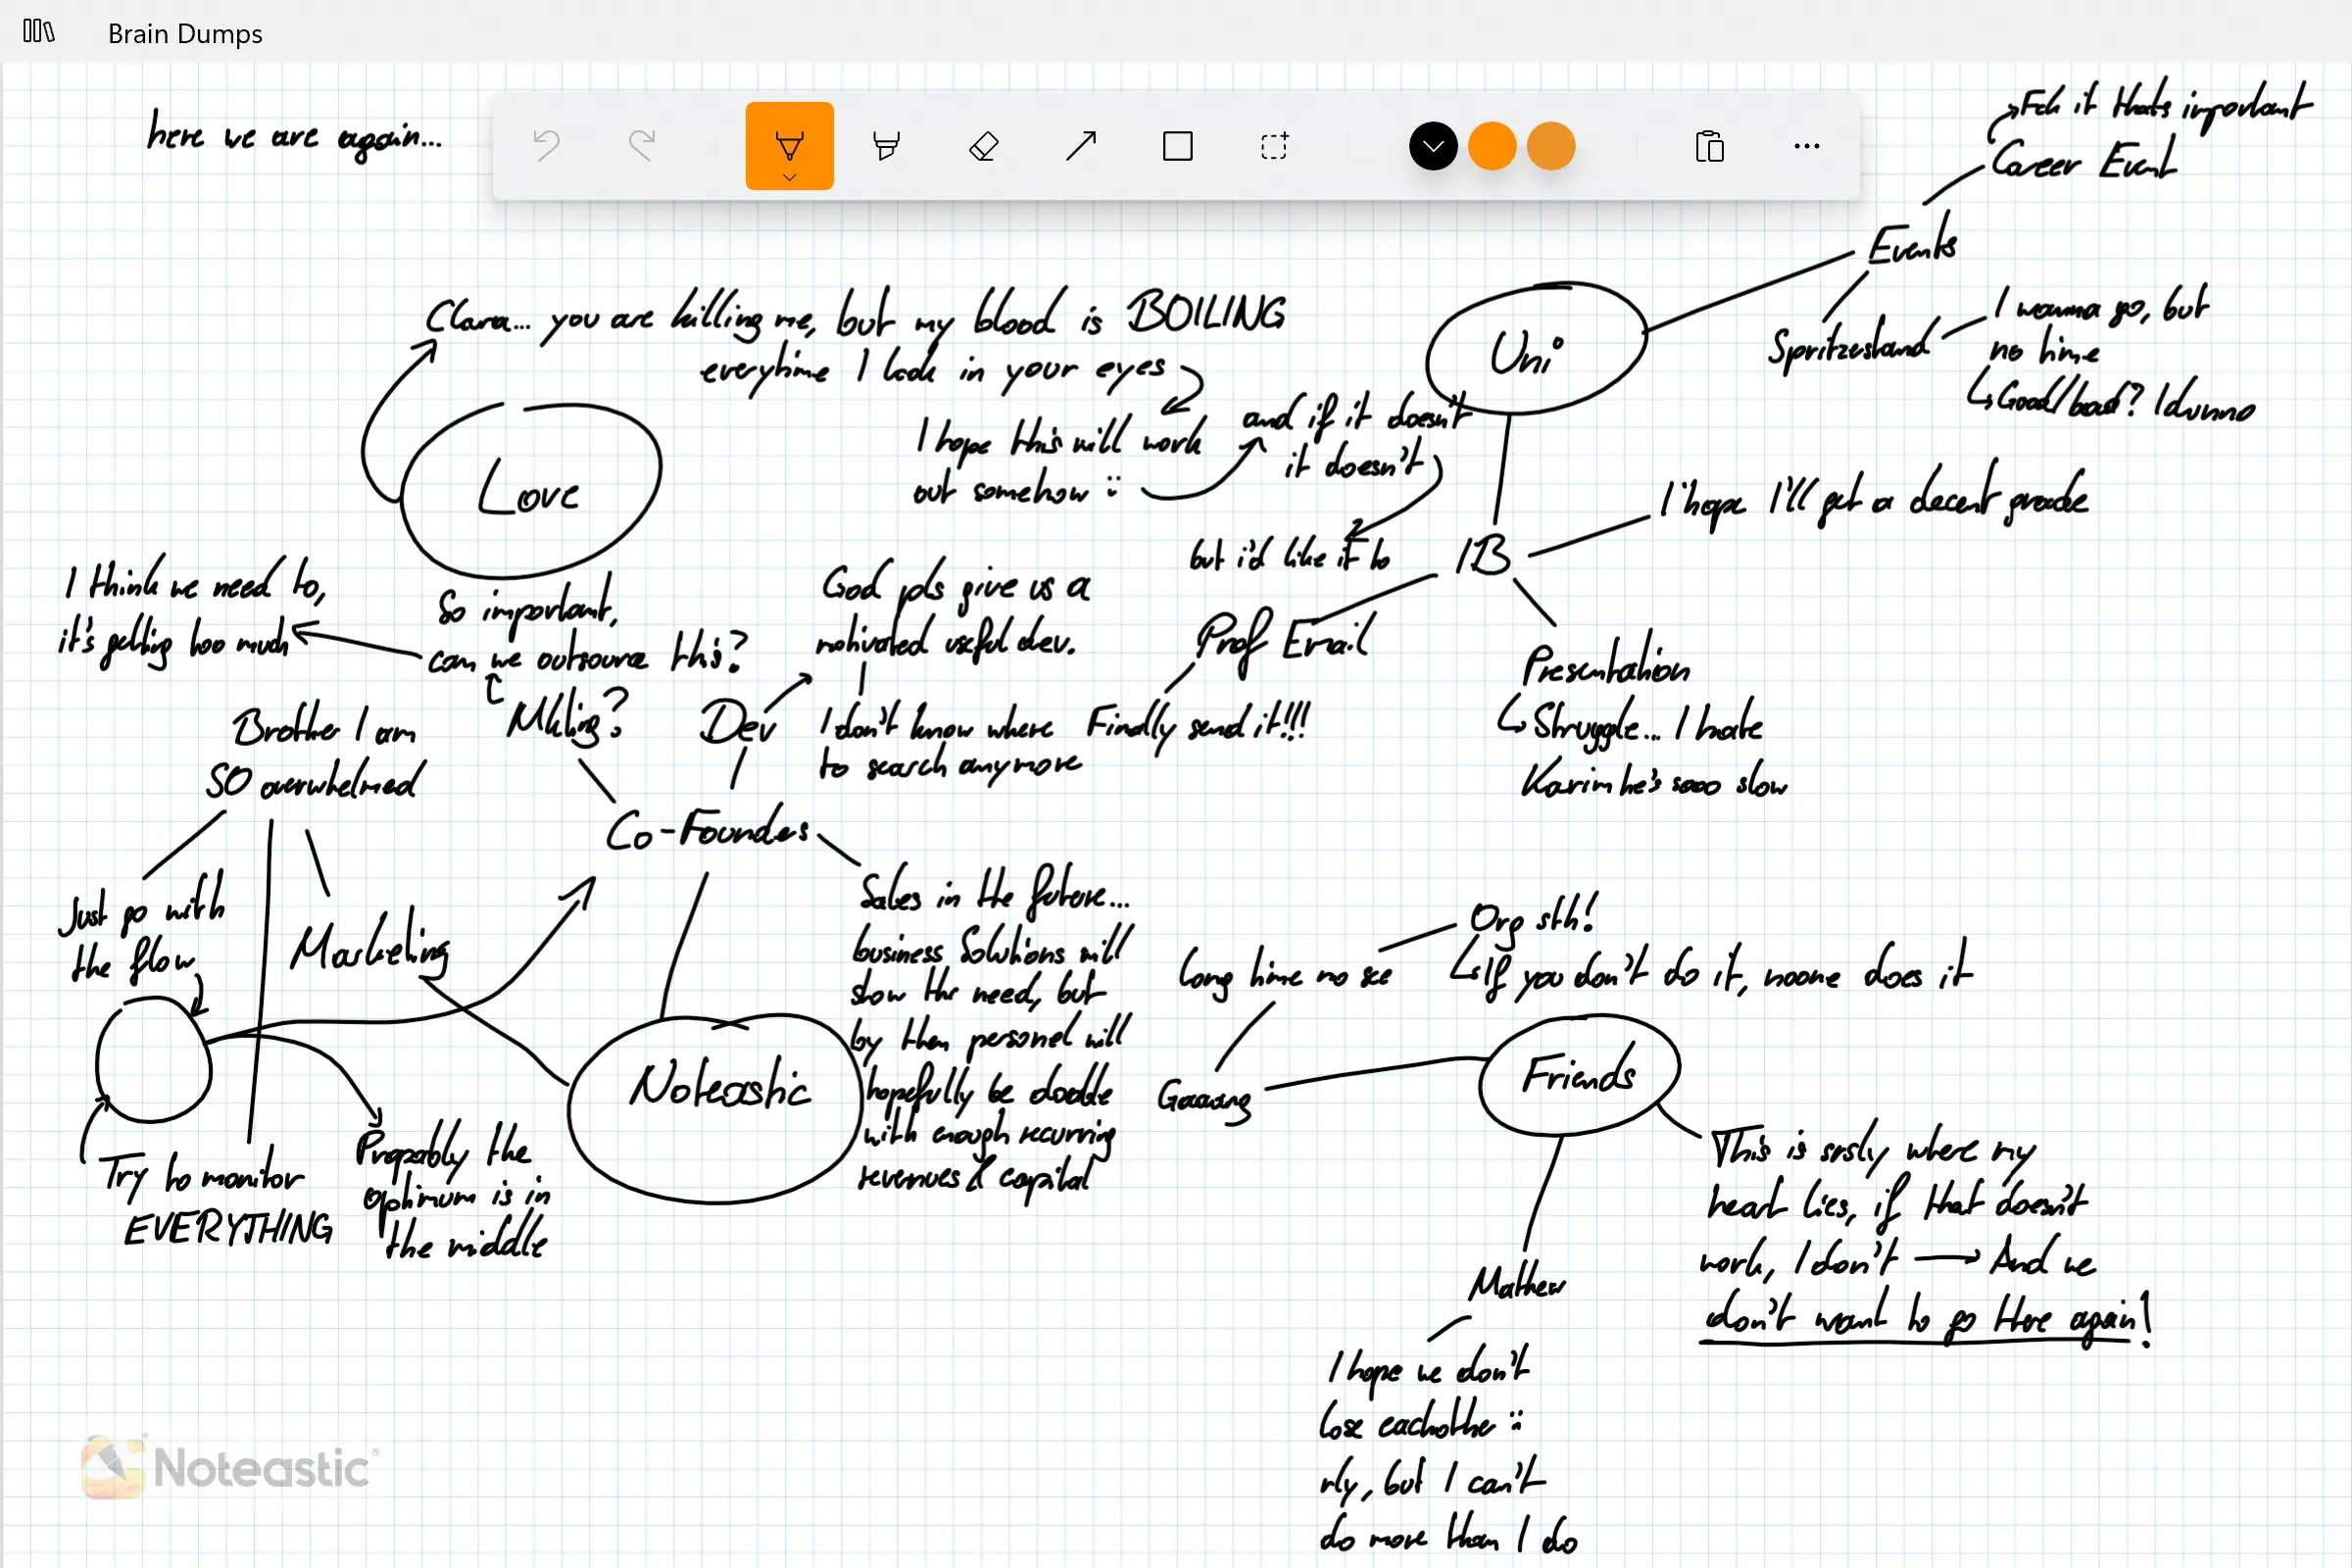 Brain Dumps
here we are again...
Clara... you are killing me, but my blood is BOILING
everytime I look in your eyes
I hope this will work
out somehow :
and if it doesn't
it doesn't
but i'd like it to
Love
Uni
Events
Career Event
Fck it thats important
Spritzerstand
I wanna go, but
no time
Good/bad? Idunno
IB
I hope I'll get a decent grade
Prof Email
Finally send it!!!
Presentation
Struggle... I hate
Karim he's sooo slow
I think we need to,
it's getting too much
So important,
can we outsource this?
Mkting?
God pls give us a
motivated useful dev.
Dev
I don't know where
to search anymore
Co-Founders
Sales in the future...
business Solutions will
show the need, but
by then personel will
hopefully be doable
with enough recurring
revenues & capital
Brother I am
SO overwhelmed
Just go with
the flow
Marketing
Try to monitor
EVERYTHING
Propably the
optimum is in
the middle
Noteastic
Friends
Gaaang
long time no see
Org sth!
If you don't do it, noone does it
This is srsly where my
heart lies, if that doesn't
work, I don't → And we
don't want to go there again!
Mathew
I hope we don't
lose eachother :
rly, but I can't
do more than I do
Noteastic®